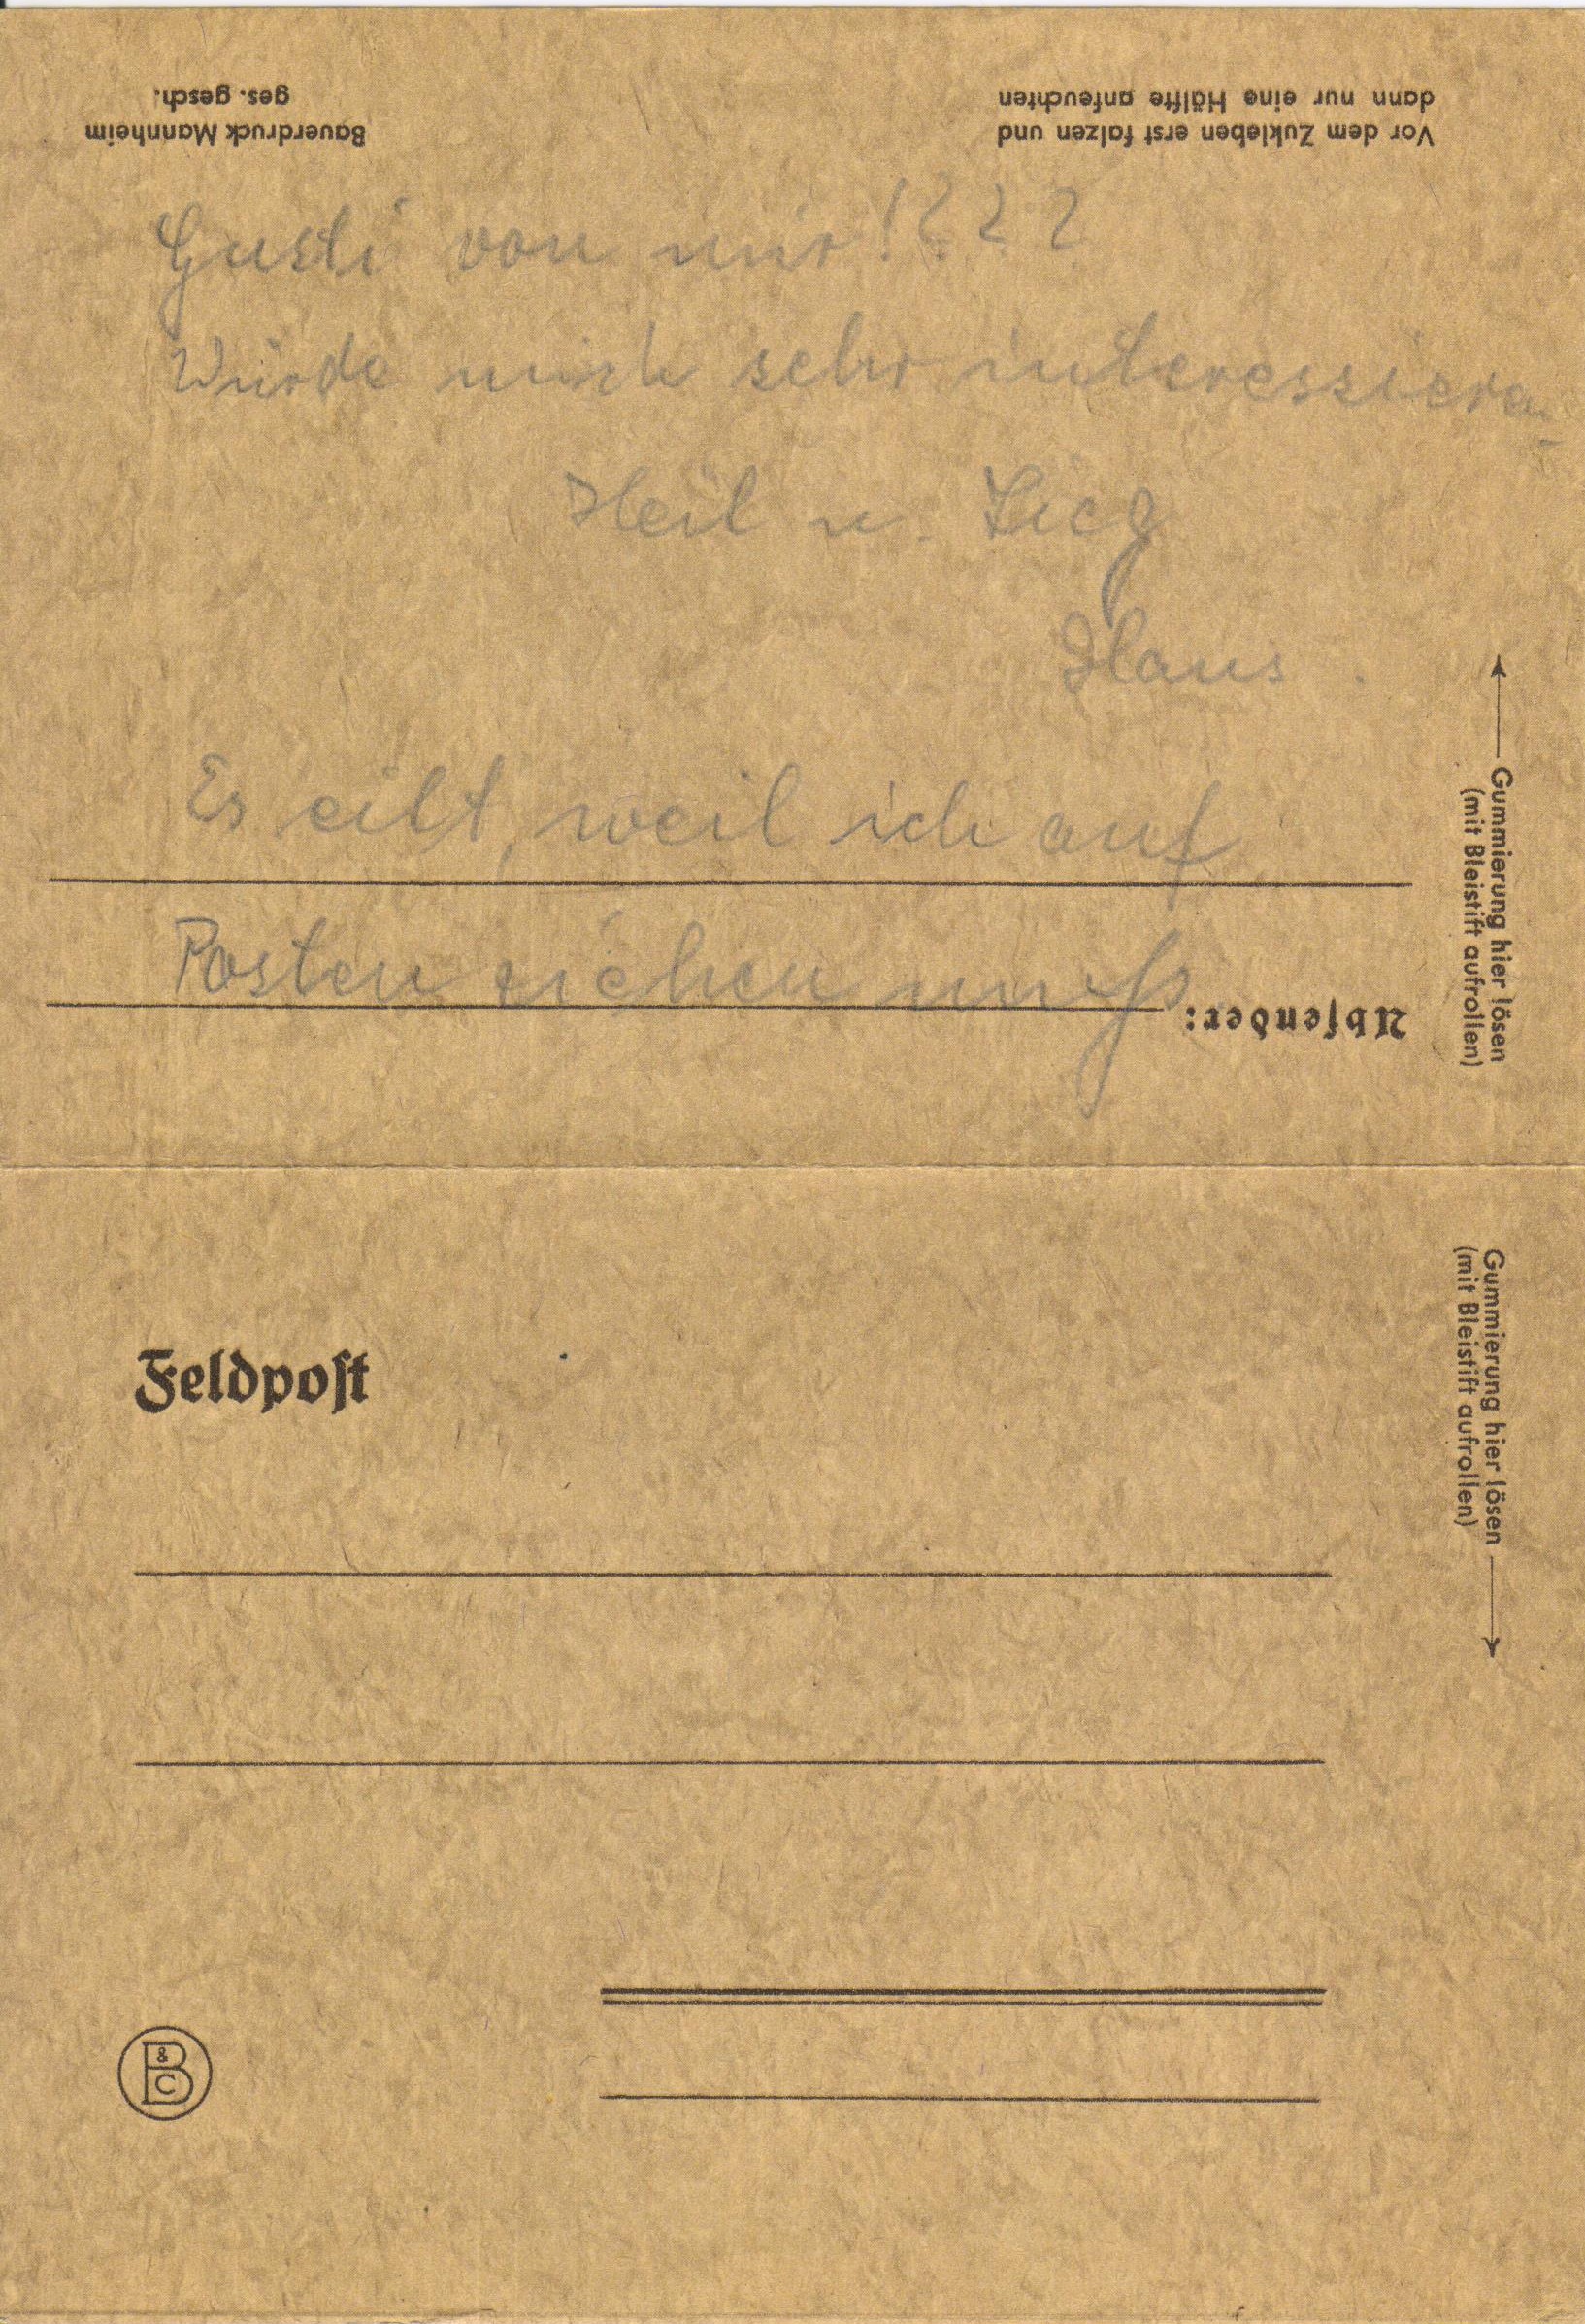 Bauerdruck Mannheim
ges. gesch.
Vor dem Zukleben erst falzen und
dann nur eine Hälfte anfeuchten
Gusti von mir!???
Würde mich sehr interessieren.
Heil u. Sieg
Hans.
Es eilt, weil ich auf
Posten ziehen muß
Absender:
Gummierung hier lösen
(mit Bleistift aufrollen)
Gummierung hier lösen
(mit Bleistift aufrollen)
Feldpost
B & C